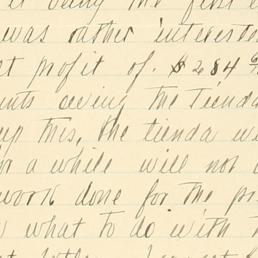 it being the first
was rather interest
et profit of. $284
unts owing the Tienda
up this, the tienda w
for a while will not
work done for the pr
what to do with